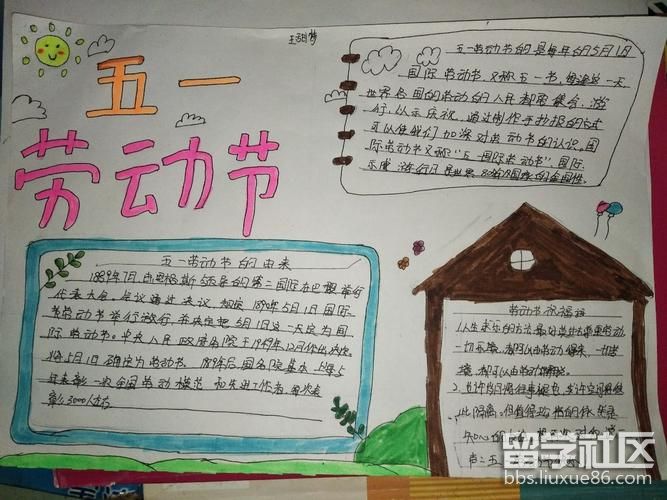 王甜梦
五一
劳动节
五一劳动节的是每年的5月1日
国际劳动节又称五一书,每逢这一天
世界各国的劳动的人民都要集会,游
行,以示庆祝。通过制作手抄报的方式
可以使我们加深对劳动书的认识。国
际劳动书又称"五一国际劳动书",国际
示威 游行月 是世界
五一劳动书的由来
1889年7月,由恩格斯
的第二国际在巴黎举行
代表大会,会议通过决议,规定1890年5月1日国际
劳动者举行游行,并决定把5月1日这一天定为国
际劳动节。中央人民政府
于1949年12月作出决定,
将五月1日确定为劳动书。1989年后,国务院基本上每5
年表彰一次全国劳动模范和先进工作者,每次表
彰3000人左右
劳动节祝福语
1.人生求乐的方法,最好
劳动。
一切乐境,都可以由劳动得来,一切苦
境,都可以由劳动解脱。
2.
此隔离。但值得
知心的
留学社区
bbs.liuxue86.com